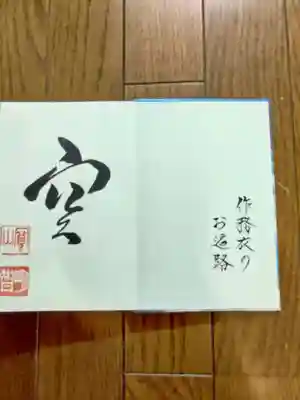 作務衣の
お遍路
空